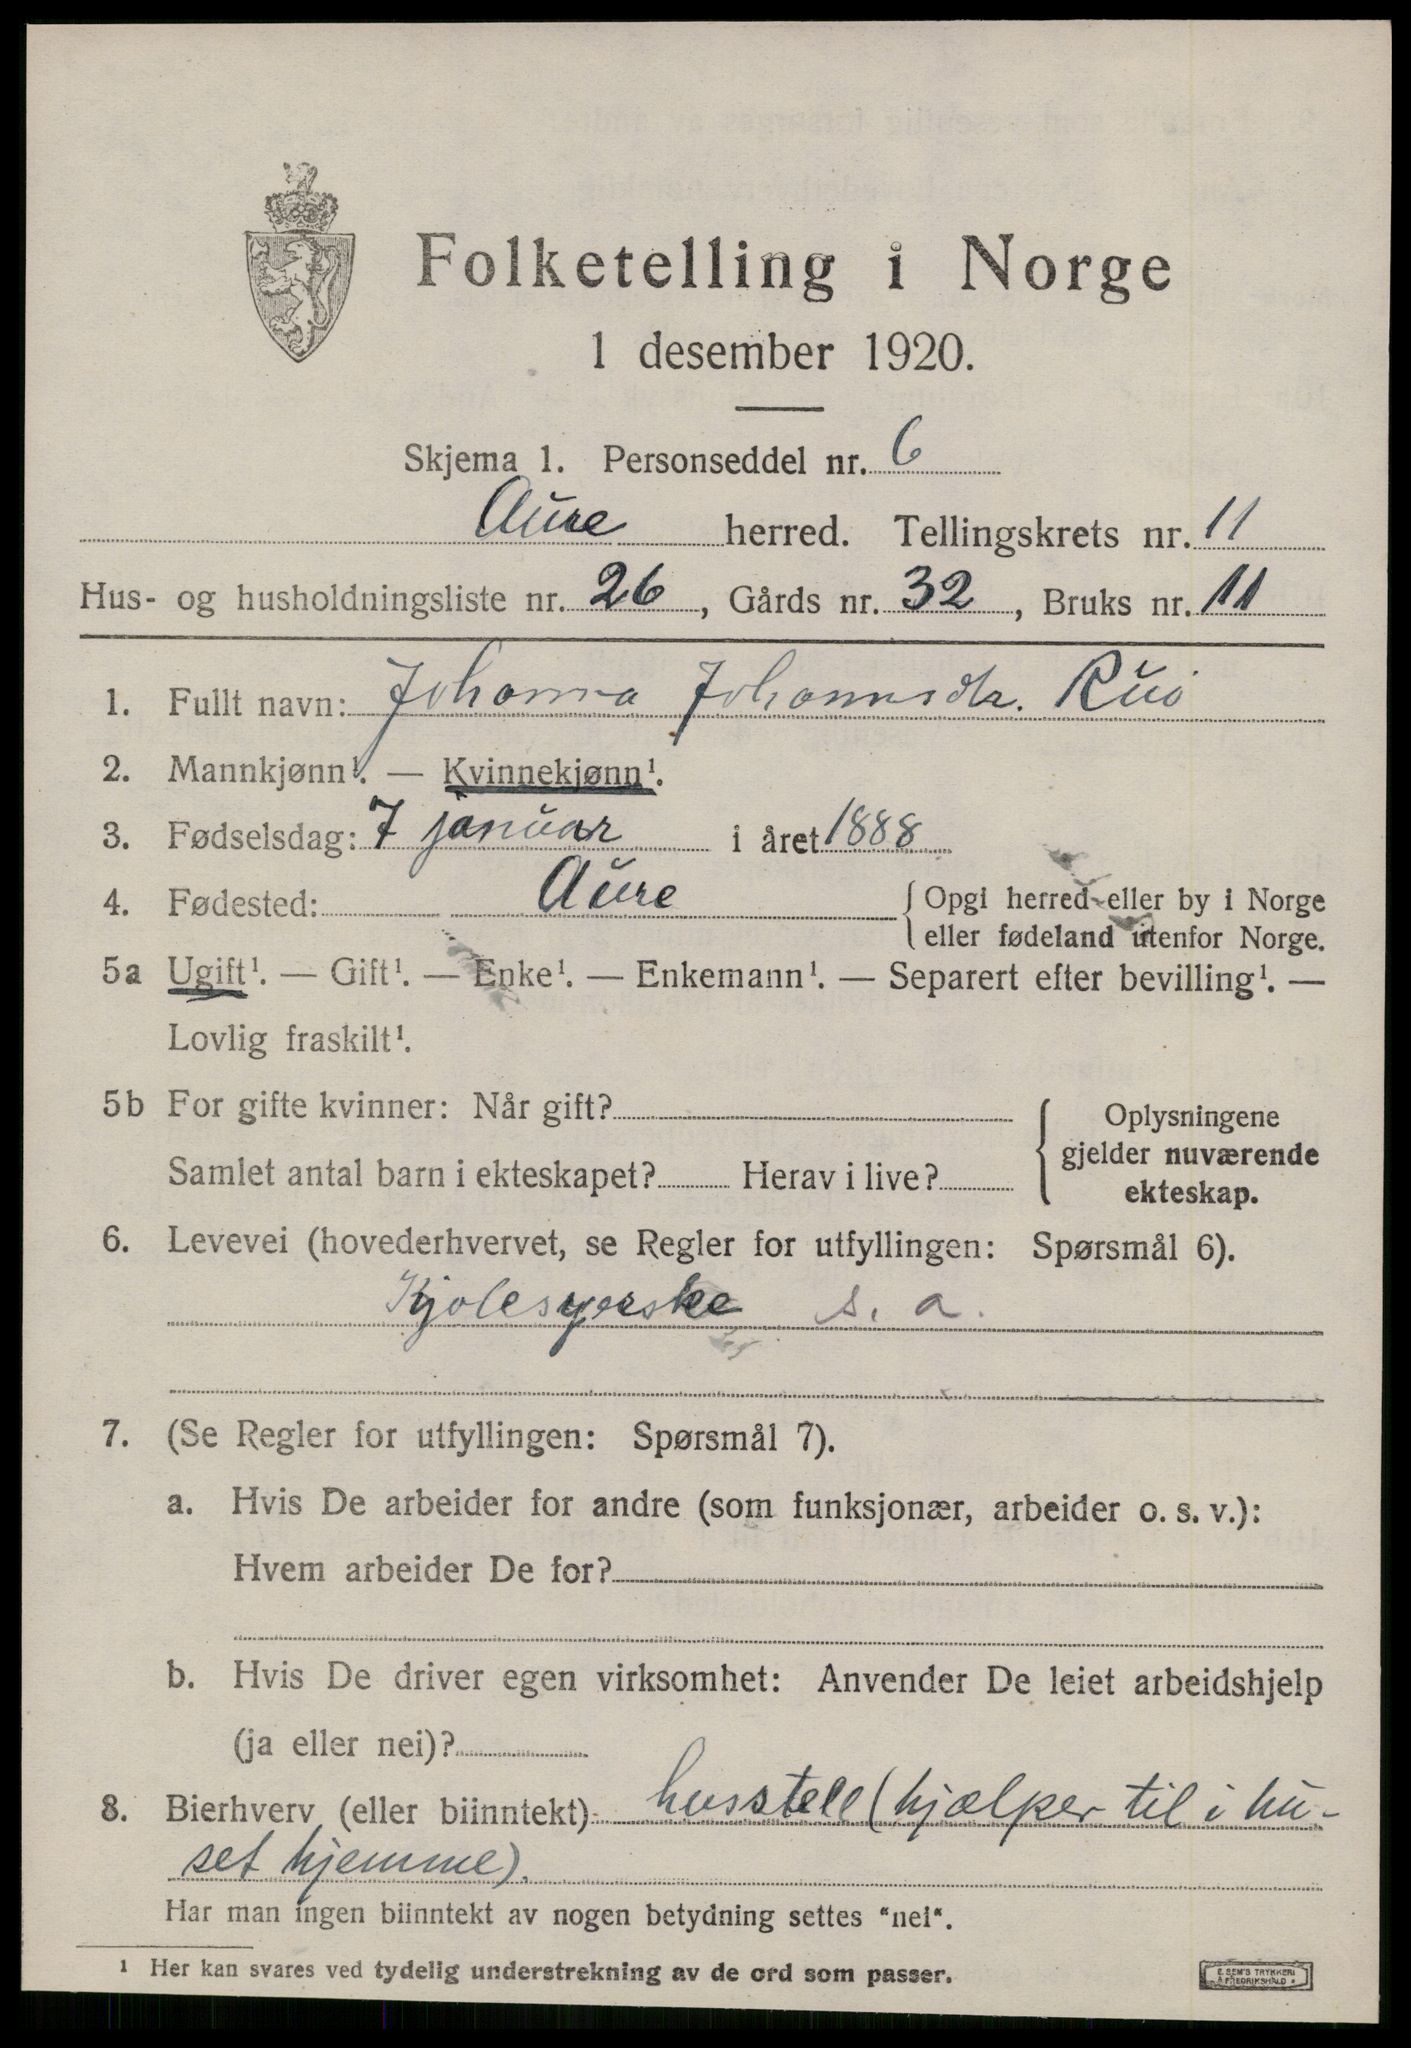 Folketelling i Norge
1 desember 1920.
Skjema 1. Personseddel nr. 6
Aure herred. Tellingskrets nr. 11
Hus- og husholdningsliste nr. 26, Gårds nr. 32, Bruks nr. 11
1. Fullt navn: Johanna Johannesdr. Ruø
2. Mannkjønn¹. — Kvinnekjønn¹.
3. Fødselsdag: 7 januar i året 1888
4. Fødested: Aure { Opgi herred eller by i Norge
eller fødeland utenfor Norge.
5a Ugift¹. — Gift¹. — Enke¹. — Enkemann¹. — Separert efter bevilling¹. —
Lovlig fraskilt¹.
5b For gifte kvinner: Når gift? { Oplysningene
gjelder nuværende
Samlet antal barn i ekteskapet? Herav i live? ekteskap.
6. Levevei (hovederhvervet, se Regler for utfyllingen: Spørsmål 6).
Kjolesyerske s. a.
7. (Se Regler for utfyllingen: Spørsmål 7).
a. Hvis De arbeider for andre (som funksjonær, arbeider o. s. v.):
Hvem arbeider De for?
b. Hvis De driver egen virksomhet: Anvender De leiet arbeidshjelp
(ja eller nei)?
8. Bierhverv (eller biinntekt) husstell (hjælper til i hu-
set hjemme).
Har man ingen biinntekt av nogen betydning settes "nei".
1 Her kan svares ved tydelig understrekning av de ord som passer.
E. SEM'S TRYKKERI
Å FREDRIKSHALD